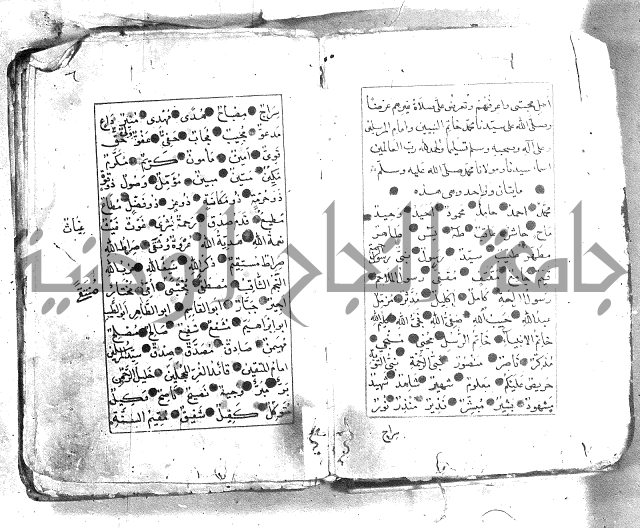 اهل محبتي واعرفهم وتعرض علي صلاة غيرهم عرضا
وصلى الله على سيدنا محمد خاتم النبيين وامام المرسلين
وعلى آله وصحبه وسلم تسليما والحمد لله رب العالمين
اسماء سيدنا ومولانا محمد صلى الله عليه وسلم
مايتان وواحد وهي هذه
محمد احمد حامد محمود احيد وحيد
ماح حاشر عاقب طه يس طاهر
مطهر طيب سيد رسول نبي رسول الرحمة
قيم جامع
رسول الراحة كامل اكليل مدثر مزمل
عبد الله حبيب الله صفي الله نجي الله كليم الله
خاتم الانبياء خاتم الرسل محيي منجي
مذكر ناصر منصور نبي الرحمة نبي التوبة
حريص عليكم معلوم شهير شاهد شهيد
مشهود بشير مبشر نذير منذر نور
سراج
سراج مصباح هدى مهدي منير داع
مدعو مجيب مجاب حفي عفو ولي حق
قوي امين مأمون كريم مكرم
مكين متين مبين مؤمل وصول ذو قوة
ذو حرمة ذو مكانة ذو عز ذو فضل مطاع
مطيع قدم صدق رحمة بشرى غوث غيث
غياث
نعمة الله هدية الله عروة وثقى صراط الله
صراط مستقيم ذكر الله سيف الله حزب الله
النجم الثاقب مصطفى مجتبى منتقى امي مختار
اجير جبار ابو القاسم ابو الطاهر ابو الطيب
ابو ابراهيم مشفع شفيع صالح مصلح
مهيمن صادق مصدق صدق سيد المرسلين
امام المتقين قائد الغر المحجلين خليل الرحمن
بر مبر وجيه نصيح ناصح وكيل
متوكل كفيل شفيق مقيم السنة
جامعة النجاح الوطنية